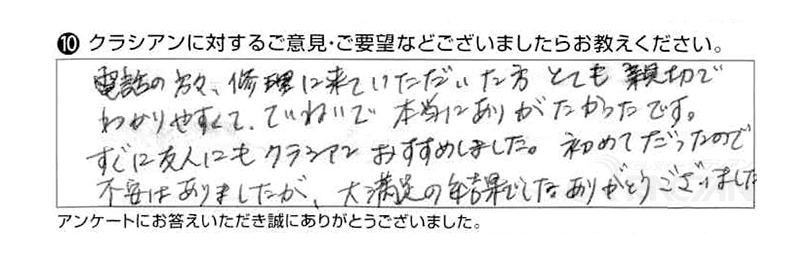 ⑩ クラシアンに対するご意見・ご要望などございましたらお教えください。
電話の方々、修理に来ていただいた方 とても 親切で
わかりやすくて、ていねいで 本当にありがたかったです。
すぐに友人にもクラシアンおすすめしました。初めてだったので
不安はありましたが、大満足の結果でしたありがとうございました
アンケートにお答えいただき誠にありがとうございました。